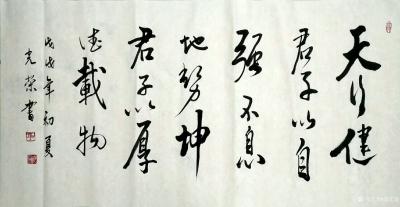 天行健
君子以自
强不息
地势坤
君子以厚
德載物
戊戌年初夏
光榮書